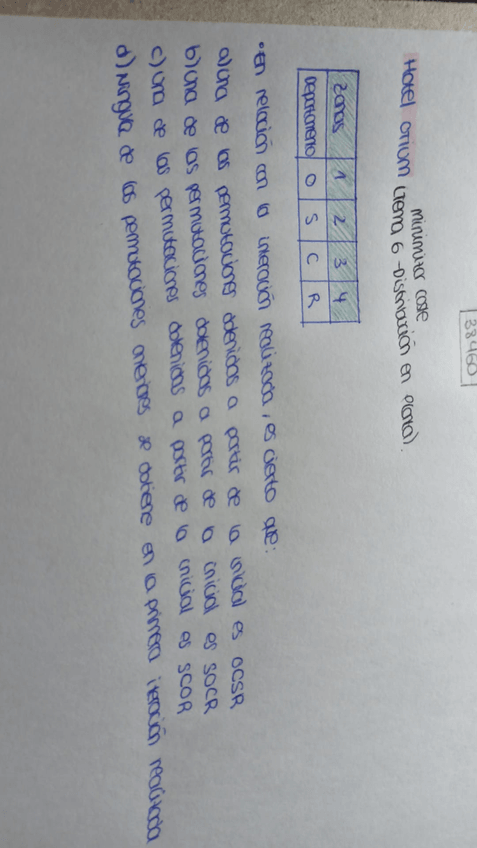 38460
Hotel Otium (Tema 6 - Distribución en planta).
minimizar coste
Zonas 1 2 3 4
Departamento O S C R
• En relación con la interación realizada, es cierto que:
a) Una de las permutaciones obtenidas a partir de la inicial es OCSR
b) Una de las permutaciones obtenidas a partir de la inicial es SOCR
c) Una de las permutaciones obtenidas a partir de la inicial es SCOR
d) Ninguna de las permutaciones anteriores se obtiene en la primera iteración realizada